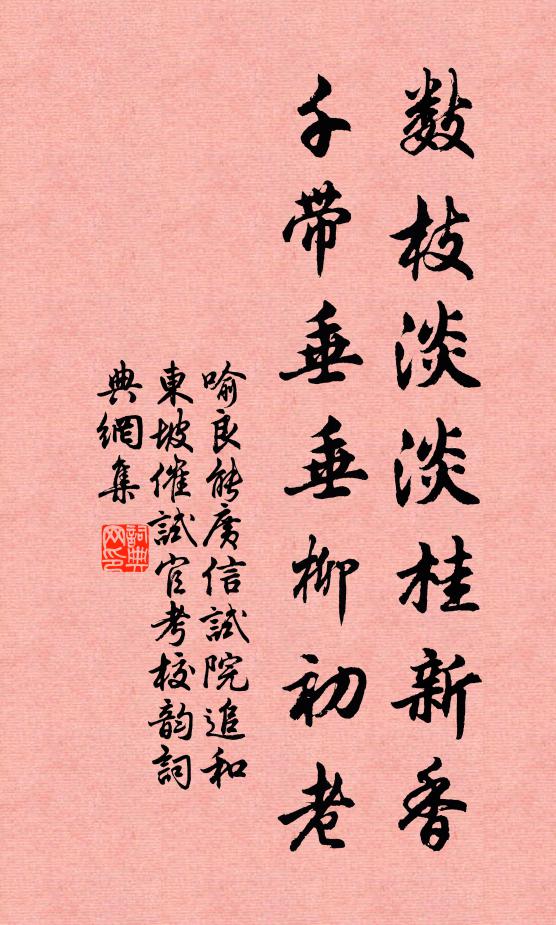 數枝淡淡桂新香
千帶垂垂柳初老
喻良能廣信試院追和
東坡催試官考校韵詞
典網集
詞典
网印